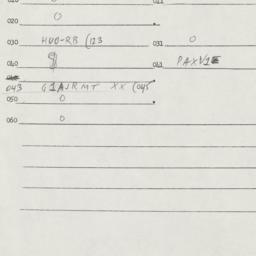 010 011
020 0
030 HUO-RB (123 031 0
040 041 PAXV1E
043 G1AJRMT XX (045
050 0
060 0